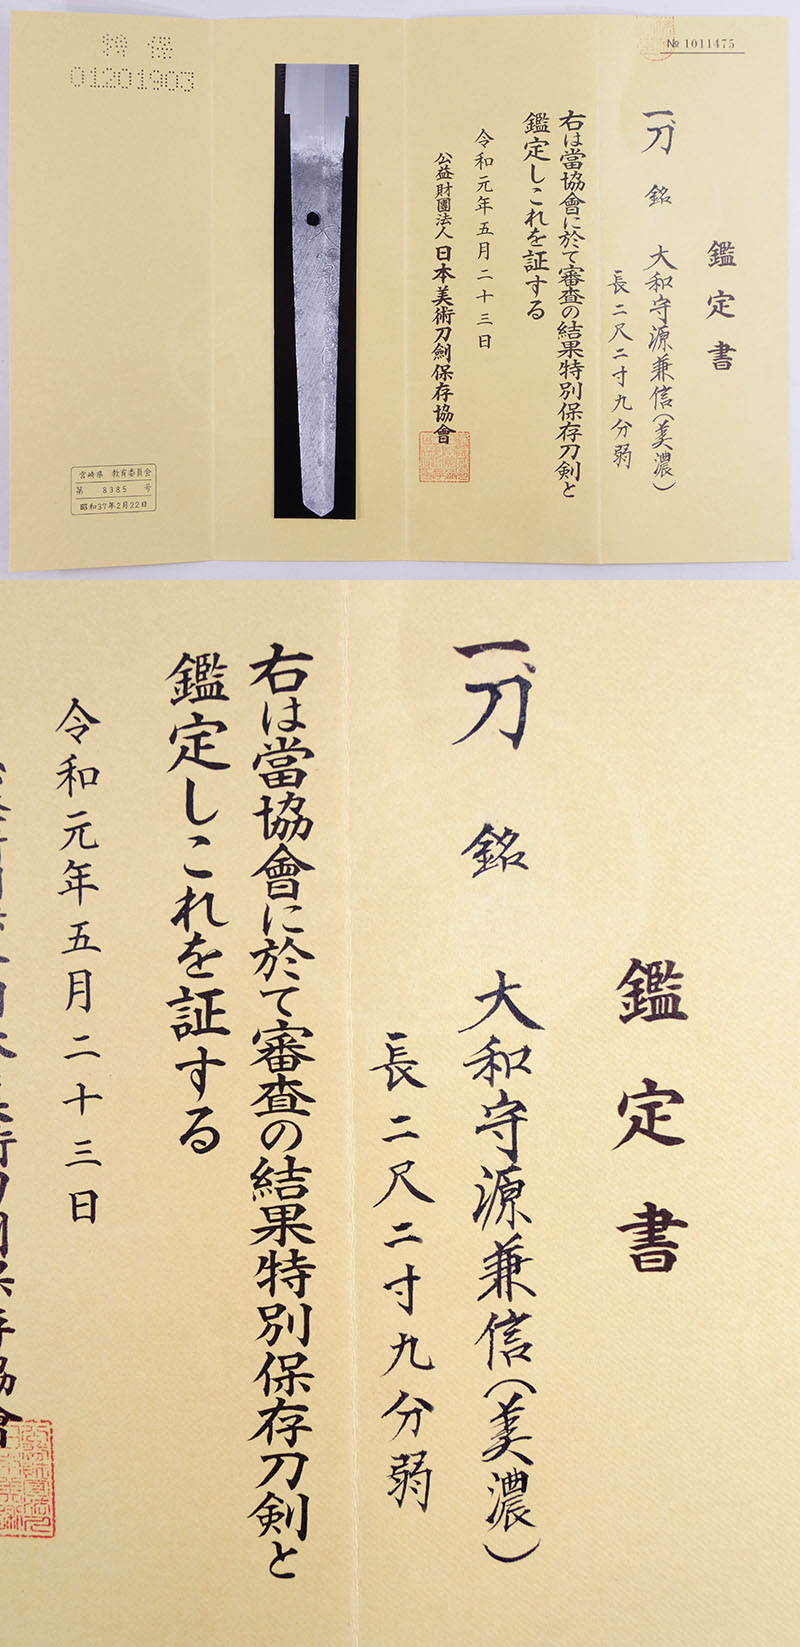 № 1011475
鑑定書
一、刀 銘 大和守源兼信(美濃)
長二尺二寸九分弱
右は當協會に於て審査の結果特別保存刀剣と
鑑定しこれを証する
令和元年五月二十三日
公益財團法人 日本美術刀劍保存協會
特保
01201903
宮崎県 教育委員会
第 8385 号
昭和37年2月22日
鑑定書
一、刀 銘 大和守源兼信(美濃)
長二尺二寸九分弱
右は當協會に於て審査の結果特別保存刀剣と
鑑定しこれを証する
令和元年五月二十三日